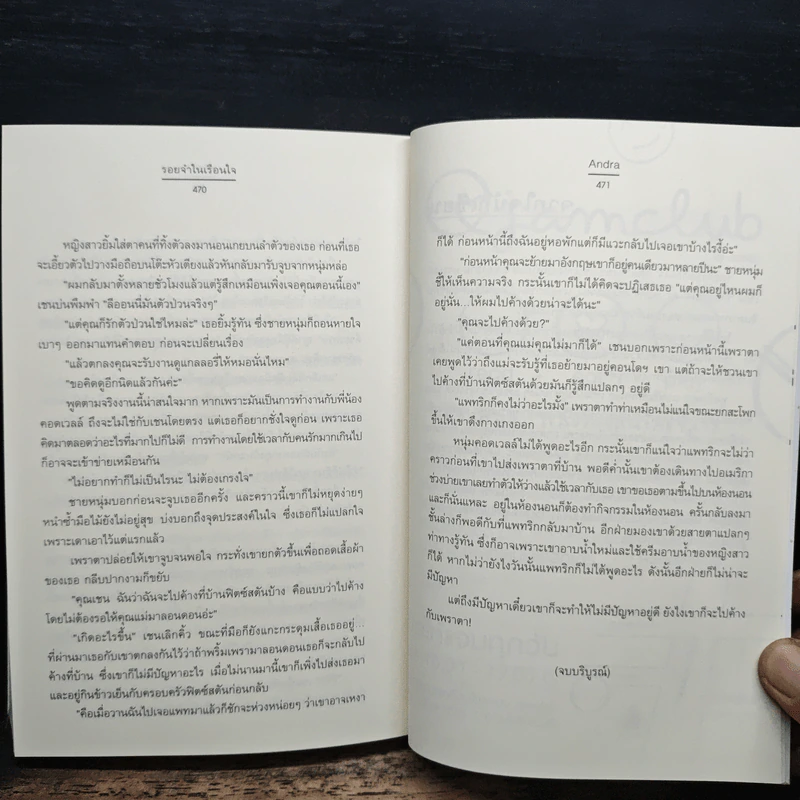 รอยจำในเรือนใจ
470
หญิงสาวยิ้มใส่ตาคนที่ทิ้งตัวลงมานอนเกยบนลำตัวของเธอ ก่อนที่เธอ
จะเอี้ยวตัวไปวางมือถือบนโต๊ะหัวเตียงแล้วหันกลับมารับจูบจากหนุ่มหล่อ
"ผมกลับมาตั้งหลายชั่วโมงแล้วแต่รู้สึกเหมือนเพิ่งเจอคุณตอนนี้เอง"
เชนบ่นพึมพำ "ลีออนนี่มันตัวป่วนจริงๆ"
"แต่คุณก็รักตัวป่วนใช่ไหมล่ะ" เธอยิ้มรู้ทัน ซึ่งชายหนุ่มก็ถอนหายใจ
เบาๆ ออกมาแทนคำตอบ ก่อนจะเปลี่ยนเรื่อง
"แล้วตกลงคุณจะรับงานดูแกลลอรี่ให้หมอนั่นไหม"
"ขอคิดดูอีกนิดแล้วกันค่ะ"
พูดตามจริงงานนี้น่าสนใจมาก หากเพราะมันเป็นการทำงานกับพี่น้อง
คอดเวลล์ ถึงจะไม่ใช่กับเชนโดยตรง แต่เธอก็อยากชั่งใจดูก่อน เพราะเธอ
คิดมาตลอดว่าอะไรที่มากไปก็ไม่ดี การทำงานโดยใช้เวลากับคนรักมากเกินไป
ก็อาจจะเข้าข่ายเหมือนกัน
"ไม่อยากทำก็ไม่เป็นไรนะ ไม่ต้องเกรงใจ"
ชายหนุ่มบอกก่อนจะจูบเธออีกครั้ง และคราวนี้เขาก็ไม่หยุดง่ายๆ
หนำซ้ำมือไม้ยังไม่อยู่สุข บ่งบอกถึงจุดประสงค์ในใจ ซึ่งเธอก็ไม่แปลกใจ
เพราะเดาเอาไว้แต่แรกแล้ว
เพราตาปล่อยให้เขาจูบจนพอใจ กระทั่งเขายกตัวขึ้นเพื่อถอดเสื้อผ้า
ของเธอ กลีบปากงามก็ขยับ
"คุณเชน ฉันว่าฉันจะไปค้างที่บ้านฟิตซ์สตันบ้าง คือแบบว่าไปค้าง
โดยไม่ต้องรอให้คุณแม่มาลอนดอนอ่ะ"
"เกิดอะไรขึ้น" เชนเลิกคิ้ว ขณะที่มือก็ยังแกะกระดุมเสื้อเธออยู่...
ที่ผ่านมาเธอกับเขาตกลงกันไว้ว่าถ้าพริ้มเพรามาลอนดอนเธอก็จะกลับไป
ค้างที่บ้าน ซึ่งเขาก็ไม่มีปัญหาอะไร เมื่อไม่นานมานี้เขาก็เพิ่งไปส่งเธอมา
และอยู่กินข้าวเย็นกับครอบครัวฟิตซ์สตันก่อนกลับ
"คือเมื่อวานฉันไปเจอแพทมาแล้วก็ชักจะห่วงหน่อยๆ ว่าเขาอาจเหงา
Andra
471
ก็ได้ ก่อนหน้านี้ถึงฉันอยู่หอพักแต่ก็มีแวะกลับไปเจอเขาบ้างไรงี้อ่ะ"
"ก่อนหน้าคุณจะย้ายมาอังกฤษเขาก็อยู่คนเดียวมาหลายปีนะ" ชายหนุ่ม
ชี้ให้เห็นความจริง กระนั้นเขาก็ไม่ได้คิดจะปฏิเสธเธอ "แต่คุณอยู่ไหนผมก็
อยู่นั่น...ให้ผมไปค้างด้วยน่าจะได้นะ"
"คุณจะไปค้างด้วย?"
"แค่ตอนที่คุณแม่คุณไม่มาก็ได้" เชนบอกเพราะก่อนหน้านี้เพราตา
เคยพูดไว้ว่าถึงแม่จะรับรู้ที่เธอย้ายมาอยู่คอนโดฯ เขา แต่ถ้าจะให้ชวนเขา
ไปค้างที่บ้านฟิตซ์สตันด้วยมันก็รู้สึกแปลกๆ อยู่ดี
"แพทริกก็คงไม่ว่าอะไรมั้ง" เพราตาทำท่าเหมือนไม่แน่ใจขณะยกสะโพก
ขึ้นให้เขาดึงกางเกงออก
หนุ่มคอดเวลล์ไม่ได้พูดอะไรอีก กระนั้นเขาก็แน่ใจว่าแพทริกจะไม่ว่า
คราวก่อนที่เขาไปส่งเพราตาที่บ้าน พอดีค่ำนั้นเขาต้องเดินทางไปอเมริกา
ช่วงบ่ายเขาเลยทำตัวให้ว่างแล้วใช้เวลากับเธอ เขาขอเธอตามขึ้นไปบนห้องนอน
และก็นั่นแหละ อยู่ในห้องนอนก็ต้องทำกิจกรรมในห้องนอน ครั้นกลับลงมา
ชั้นล่างก็พอดีกับที่แพทริกกลับมาบ้าน อีกฝ่ายมองเขาด้วยสายตาแปลกๆ
ท่าทางรู้ทัน ซึ่งก็อาจเพราะเขาอาบน้ำใหม่และใช้ครีมอาบน้ำของหญิงสาว
ก็ได้ หากไม่ว่ายังไงวันนั้นแพทริกก็ไม่ได้พูดอะไร ดังนั้นอีกฝ่ายก็ไม่น่าจะ
มีปัญหา
แต่ถึงมีปัญหาเดี๋ยวเขาก็จะทำให้ไม่มีปัญหาอยู่ดี ยังไงเขาก็จะไปค้าง
กับเพราตา!
(จบบริบูรณ์)